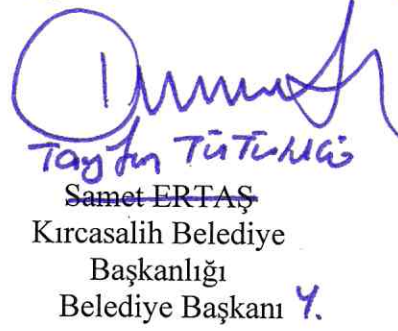 Tayfun Tütüncü
Samet ERTAŞ
Kırcasalih Belediye
Başkanlığı
Belediye Başkanı Y.